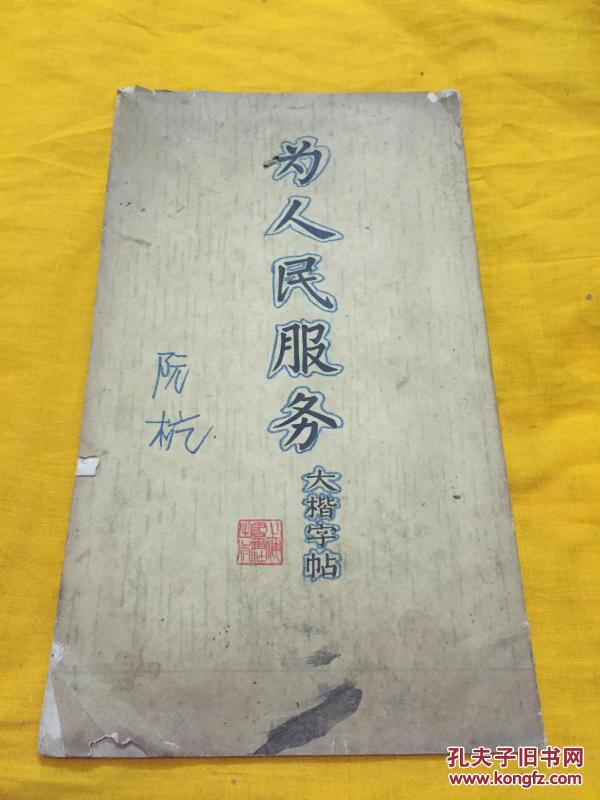 为人民服务
大楷字帖
阮
杭
孔夫子旧书网
www.kongfz.com